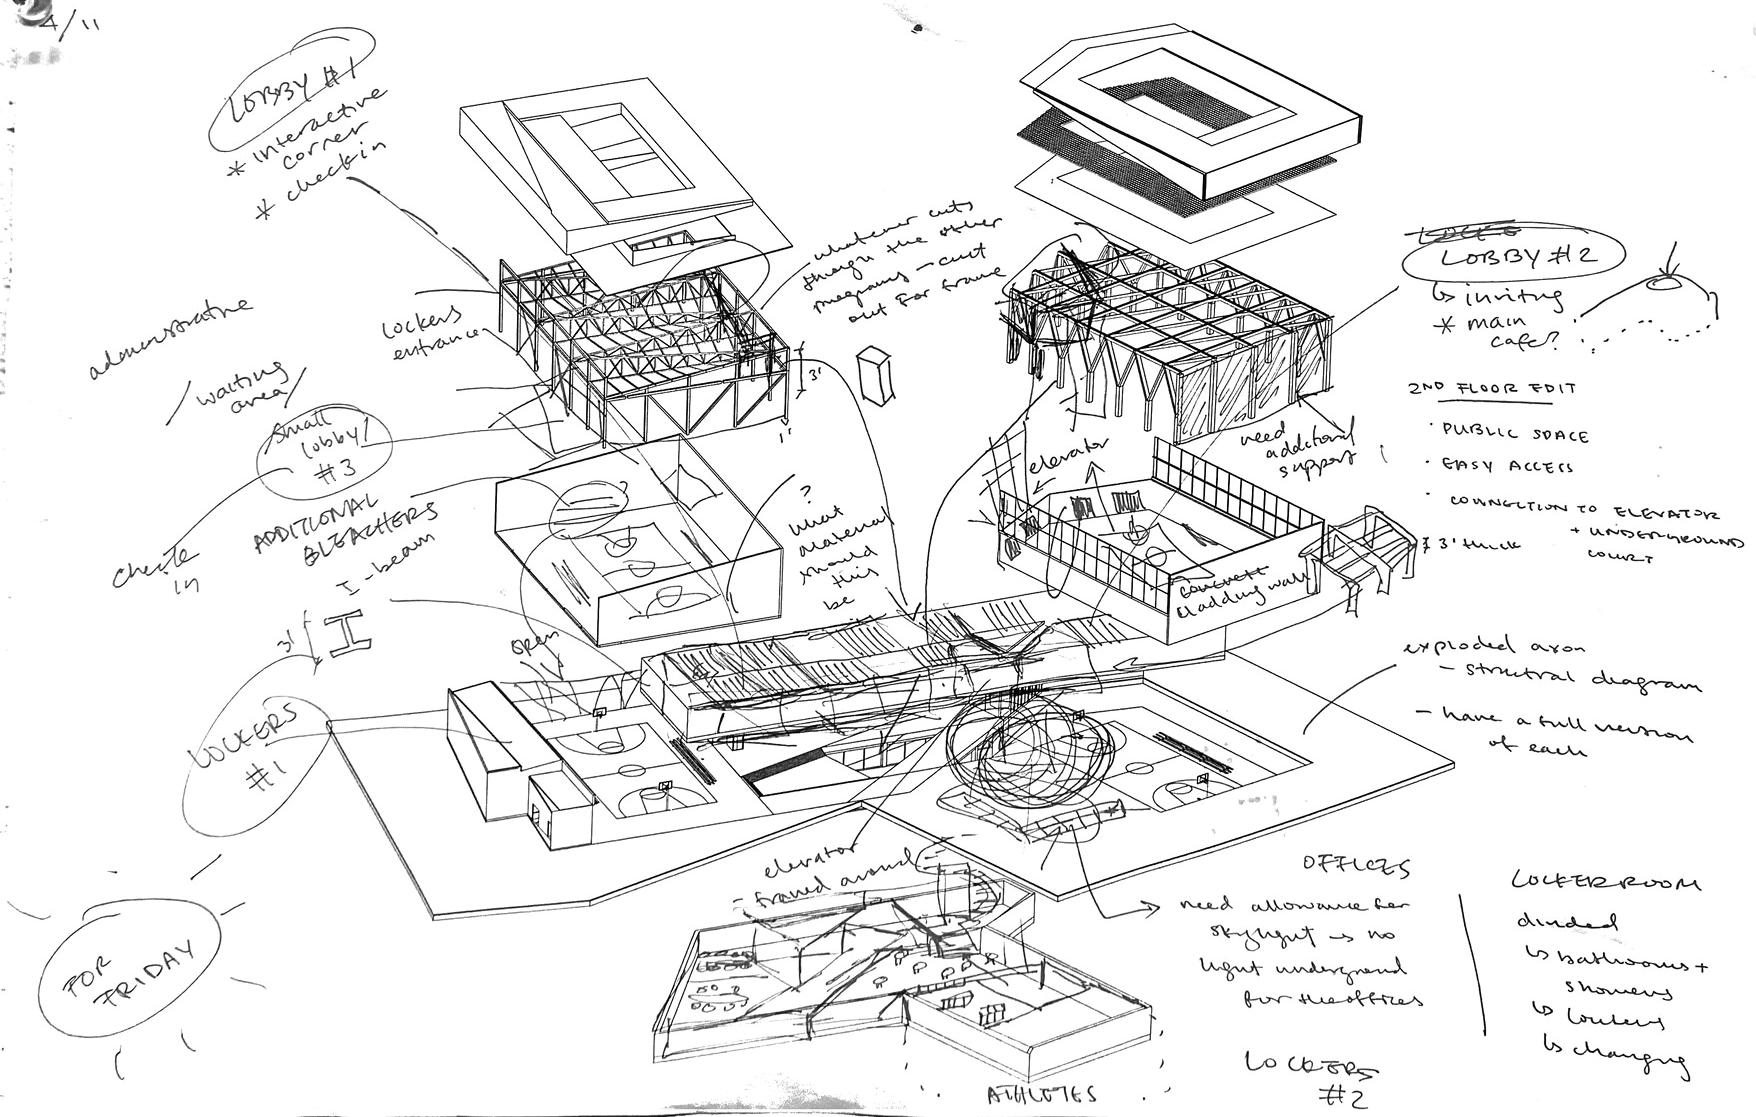 4/11
LOBBY #1
* interactive
corner
* check in
administrative
/ waiting
area /
lockers
entrance
small
lobby
#3
check
in
ADDITIONAL
BLEACHERS
I-beam
3'
LOCKERS
#1
FOR
FRIDAY
whatever cuts
through the other
programs - cut
out for frame
3'
1'
?
what
material
should
this
be
open
elevator
need
additional
support
concrete
cladding wall
LOBBY #2
↳ inviting
* main
cafe?
2ND FLOOR EDIT
· PUBLIC SPACE
· EASY ACCESS
· CONNECTION TO ELEVATOR
+ UNDERGROUND
COURT
3' thick
exploded axon
- structral diagram
- have a full version
of each
elevator
- framed around
OFFICES
need allowance for
skylight → no
light underground
for the offices
LOCKERS
#2
ATHLETES
LOCKER ROOM
divided
↳ bathrooms +
showers
↳ lockers
↳ changing